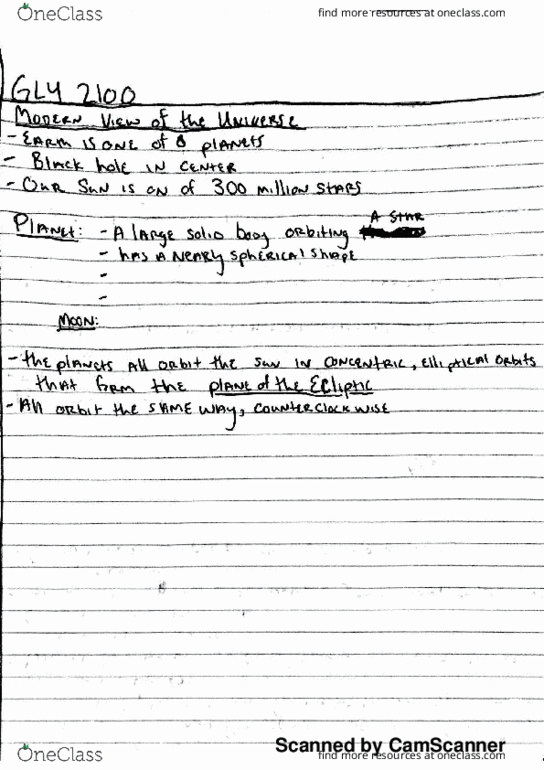 OneClass
find more resources at oneclass.com
GLY 2100
Modern View of the Universe
- Earth is one of 8 planets
- Black hole in center
- Our Sun is on of 300 million stars
Planet: - A large solid body orbiting A star
- has a nearly spherical shape
-
-
Moon:
- the planets all orbit the sun in concentric, elliptical orbits
that form the plane of the Ecliptic
- All orbit the same way, counterclockwise
Scanned by CamScanner
OneClass
find more resources at oneclass.com